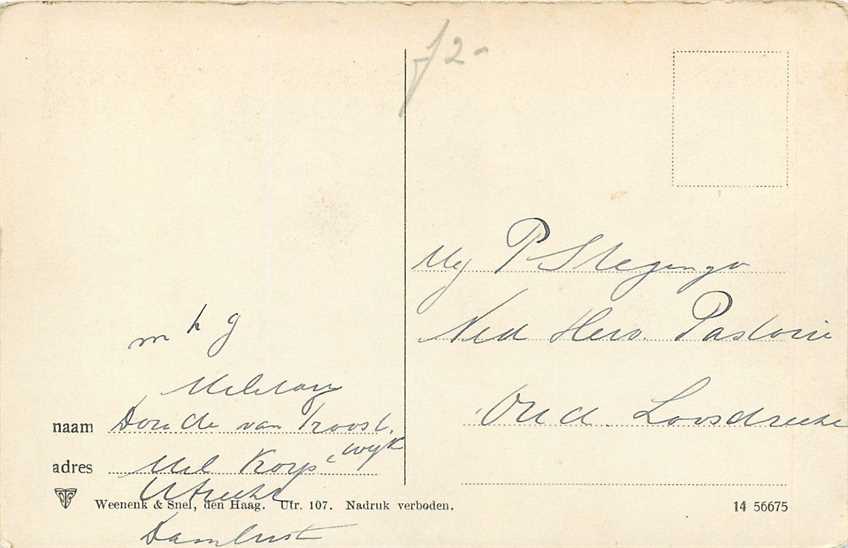 f 2-
m h g
Militair
naam Doude van Troost-
wijk
adres Mil Korps
Utrecht
Weenenk & Snel, den Haag. Utr. 107. Nadruk verboden.
Damlust
Mej P Stegenga
Ned Herv. Pastorie
Oud Loosdrecht
14 56675